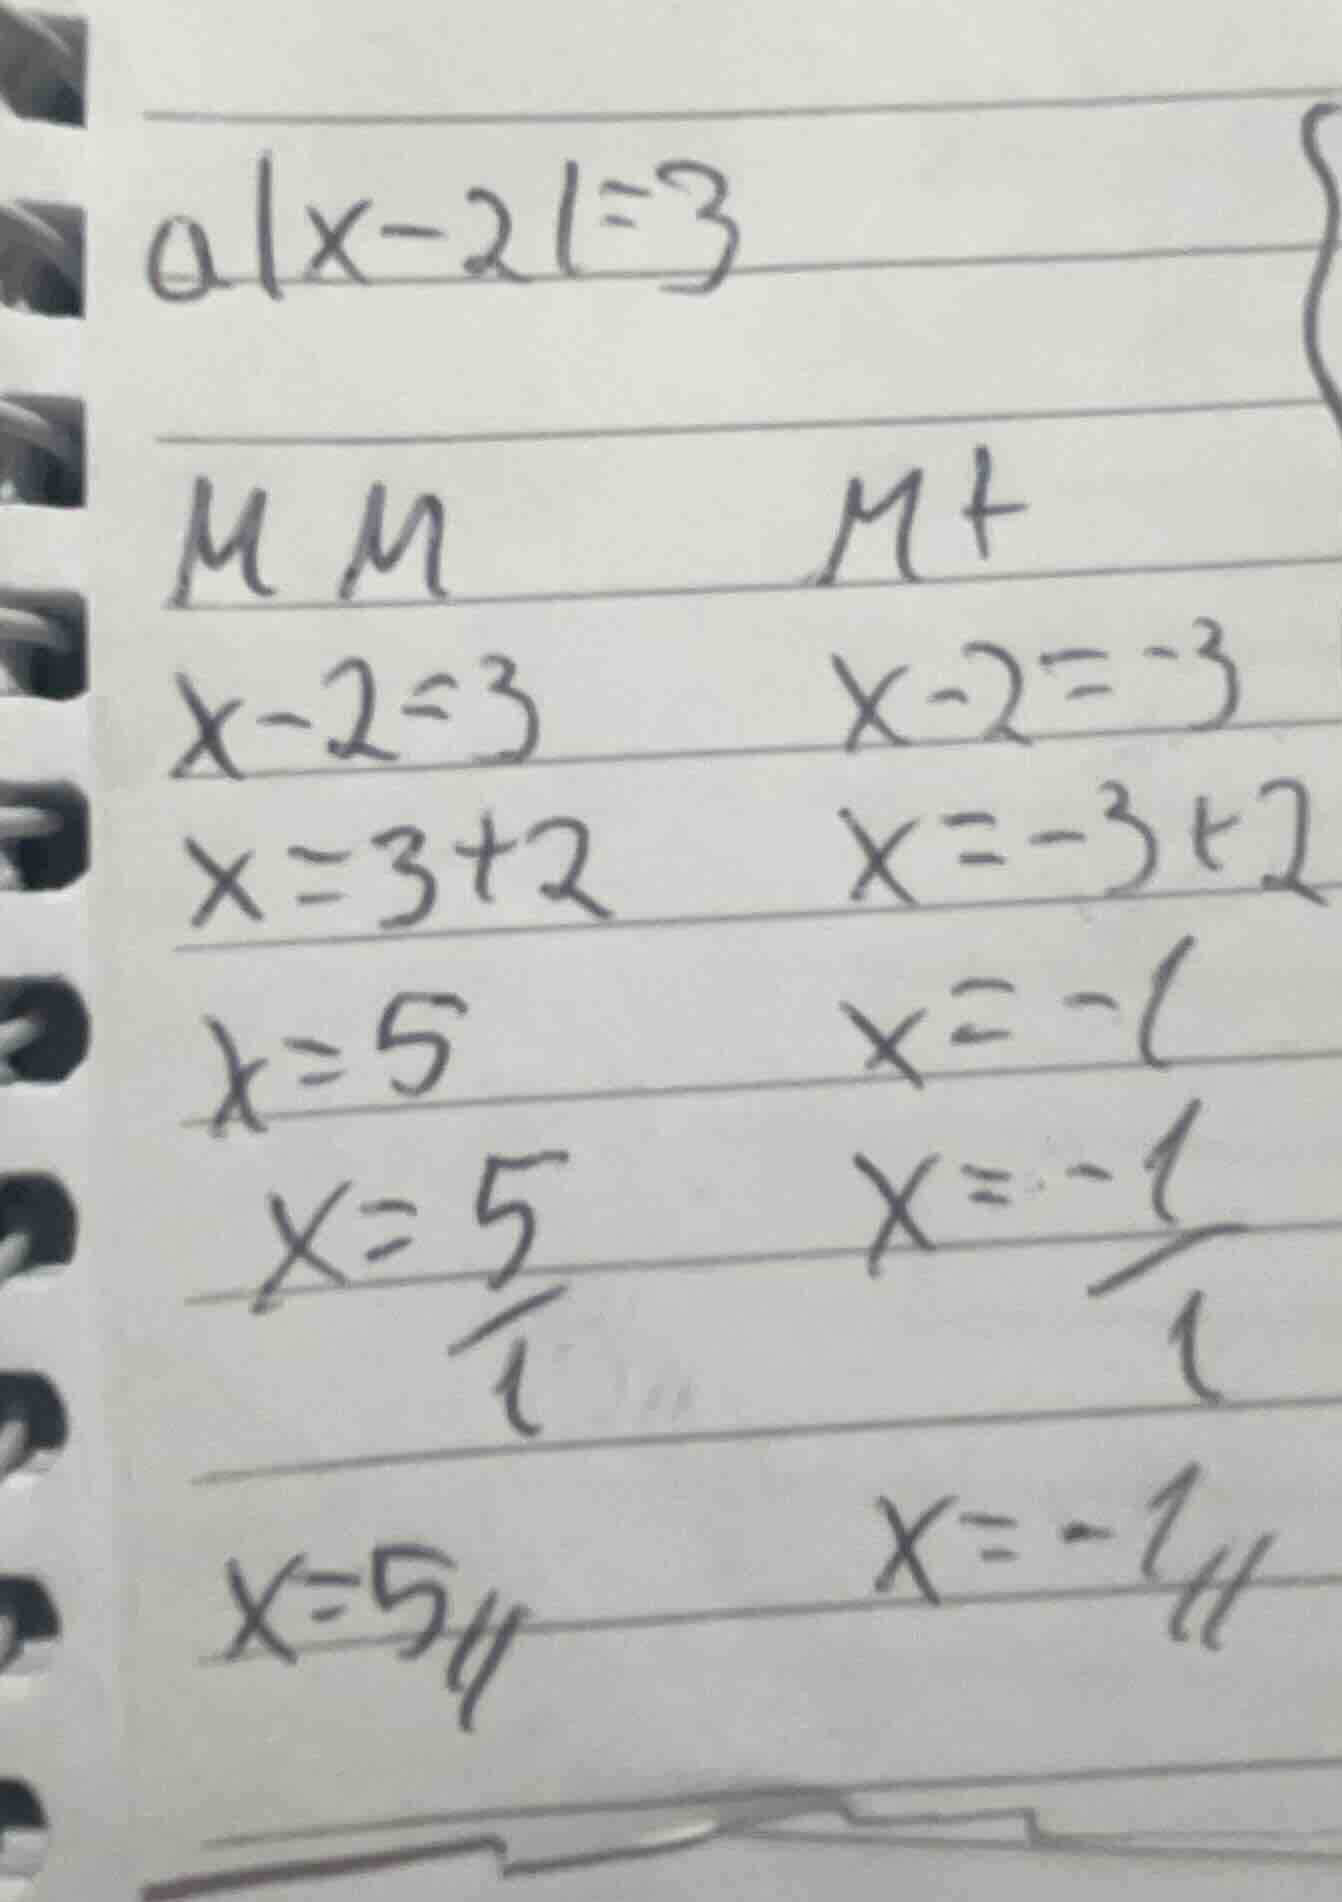 a|x-2|=3
MM
x-2=3
x=3+2
x=5
x=5/1
x=5//
M+
x-2=-3
x=-3+2
x=-1
x=-1/1
x=-1//